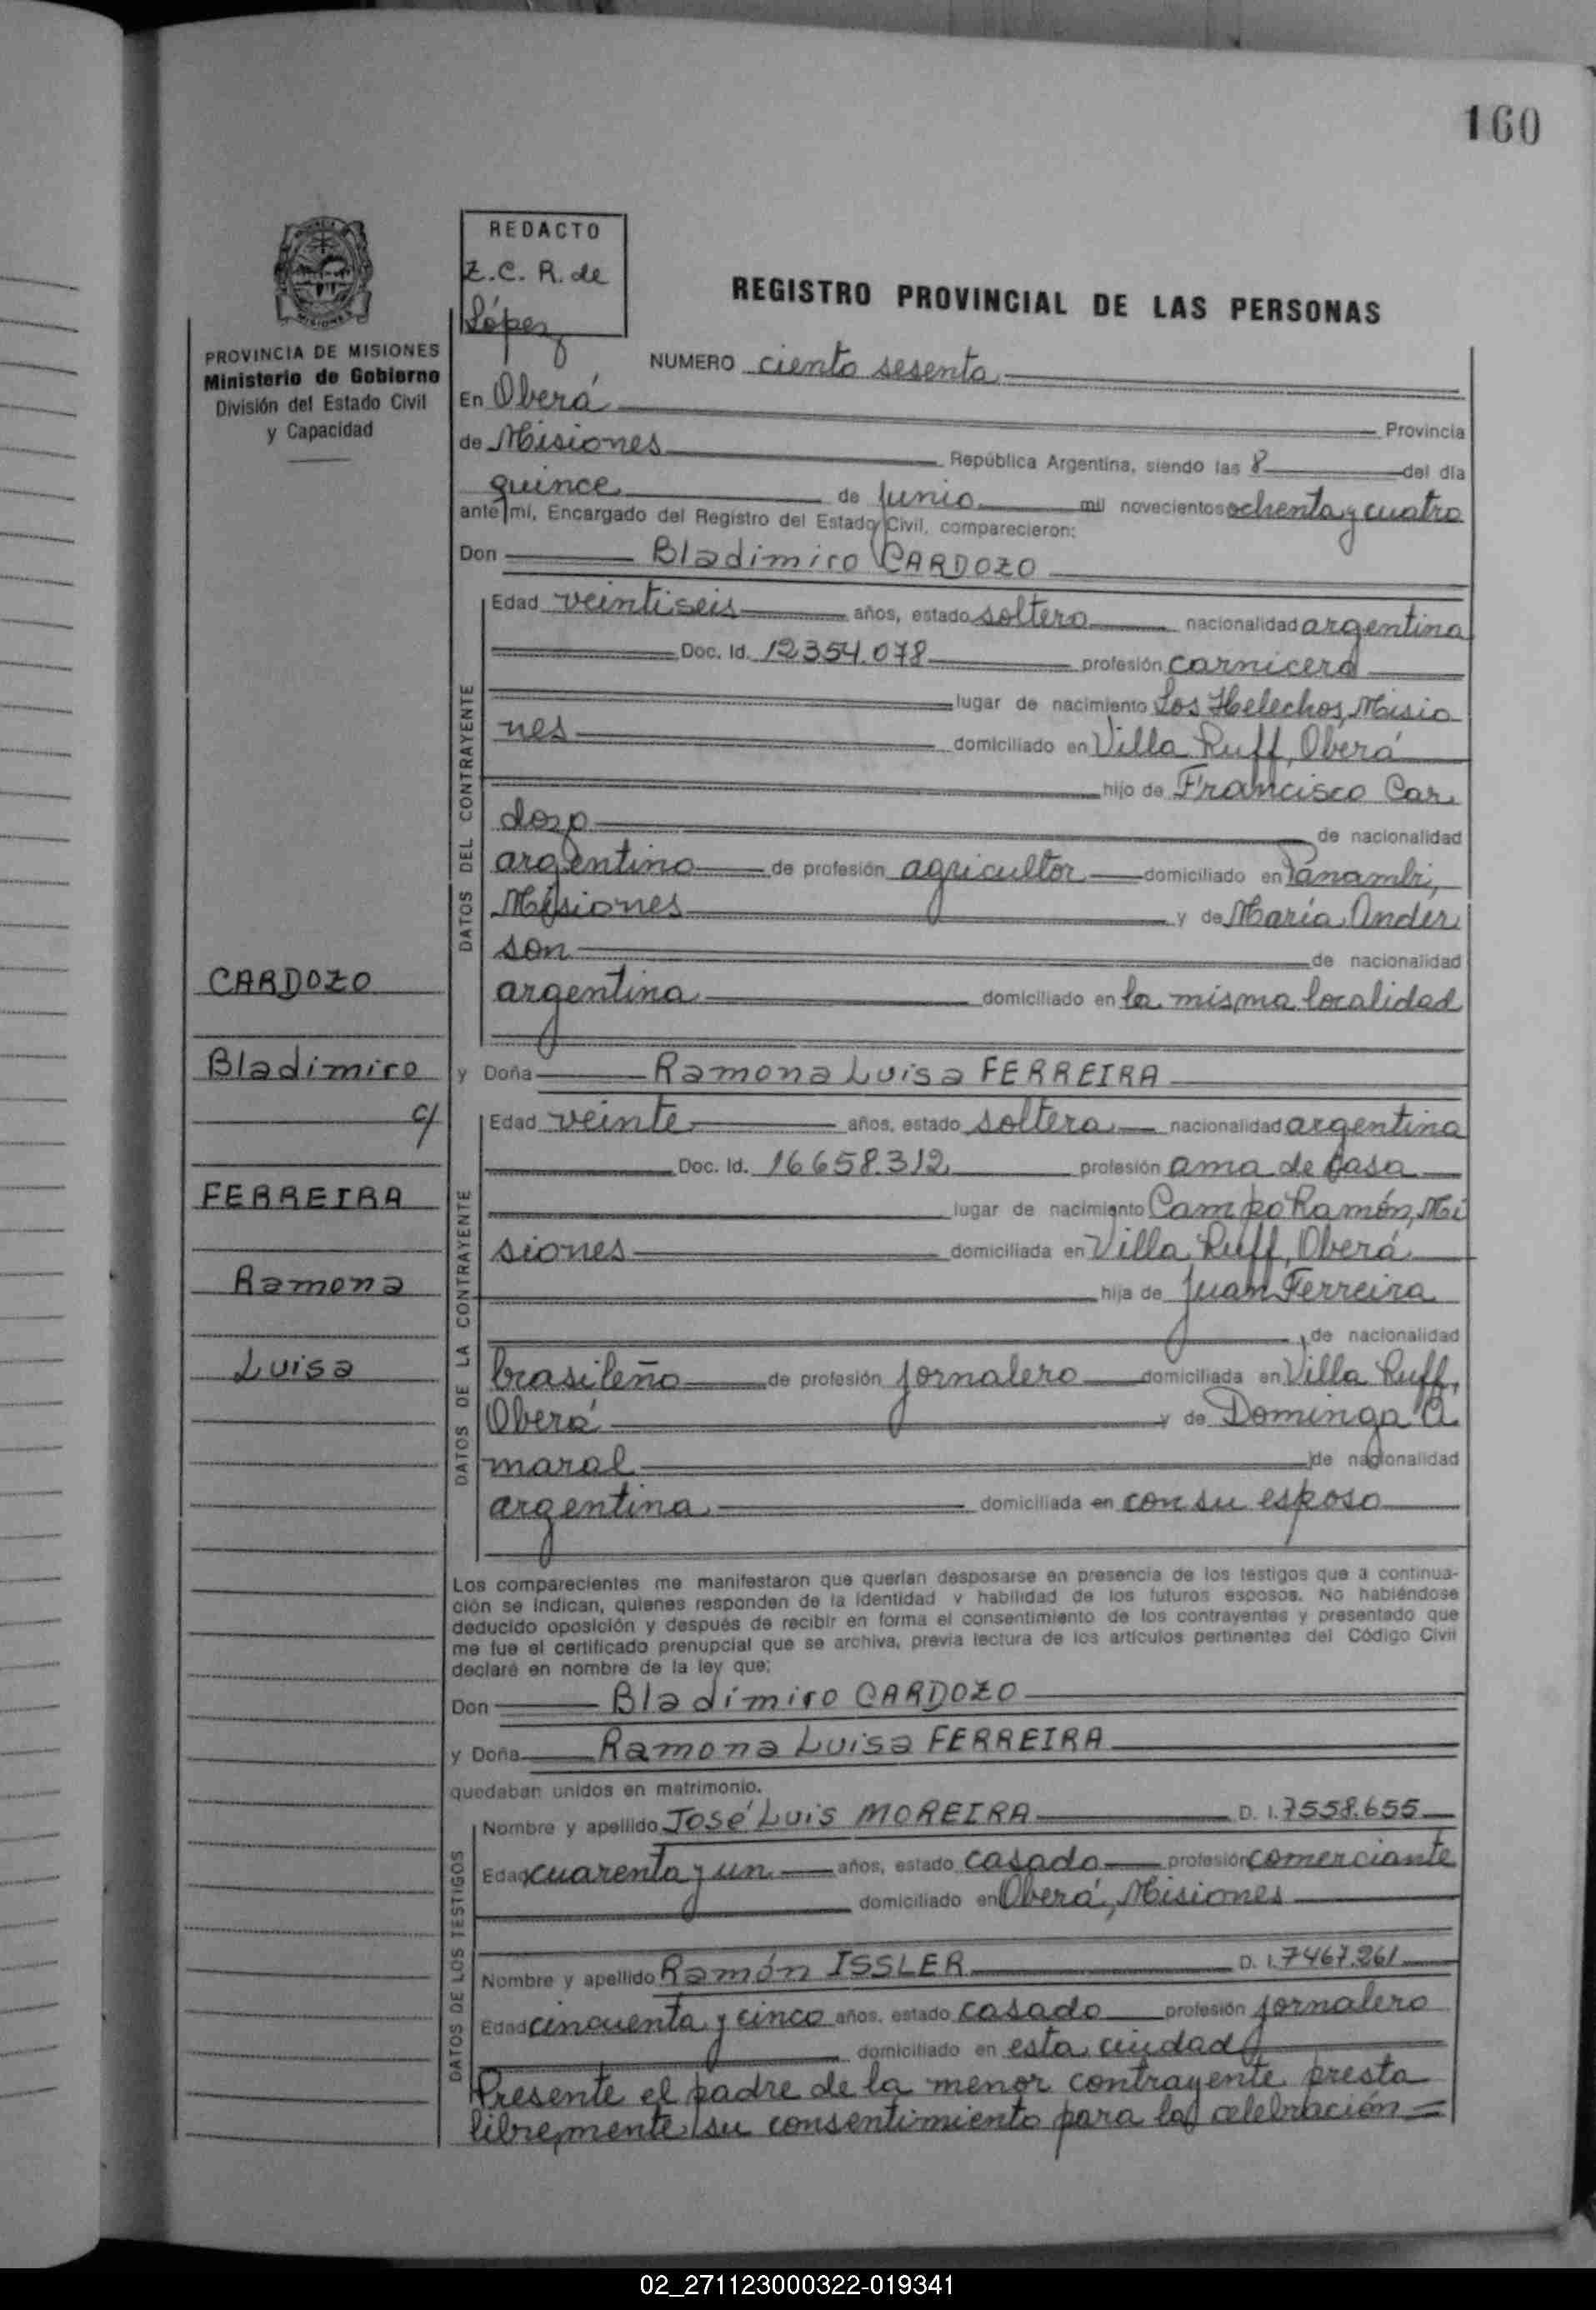 160
REDACTO
Z.C. R. de
López
REGISTRO PROVINCIAL DE LAS PERSONAS
PROVINCIA DE MISIONES
Ministerio de Gobierno
División del Estado Civil
y Capacidad
NUMERO ciento sesenta
En Oberá Provincia
de Misiones República Argentina, siendo las 8 del día
quince de Junio mil novecientos ochenta y cuatro
ante mí, Encargado del Registro del Estado Civil, comparecieron:
Don Bladimiro CARDOZO
DATOS DEL CONTRAYENTE
Edad veintiseis años, estado soltero nacionalidad argentina
Doc. Id. 12354.078 profesión carnicero
lugar de nacimiento Los Helechos, Misio
nes domiciliado en Villa Ruff, Oberá
hijo de Francisco Car
dozo de nacionalidad
argentino de profesión agricultor domiciliado en Panambi,
Misiones y de María Ander
son de nacionalidad
argentina domiciliado en la misma localidad
CARDOZO
Bladimiro
c/
FERREIRA
Ramona
Luisa
y Doña Ramona Luisa FERREIRA
DATOS DE LA CONTRAYENTE
Edad veinte años, estado soltera nacionalidad argentina
Doc. Id. 16658.312 profesión ama de casa
lugar de nacimiento Campo Ramón, Mi
siones domiciliada en Villa Ruff, Oberá
hija de Juan Ferreira
de nacionalidad
brasileño de profesión jornalero domiciliada en Villa Ruff,
Oberá y de Dominga A
maral de nacionalidad
argentina domiciliada en con su esposo
Los comparecientes me manifestaron que querían desposarse en presencia de los testigos que a continua-
ción se indican, quienes responden de la identidad y habilidad de los futuros esposos. No habiéndose
deducido oposición y después de recibir en forma el consentimiento de los contrayentes y presentado que
me fue el certificado prenupcial que se archiva, previa lectura de los artículos pertinentes del Código Civil
declaré en nombre de la ley que:
Don Bladimiro CARDOZO
y Doña Ramona Luisa FERREIRA
quedaban unidos en matrimonio.
DATOS DE LOS TESTIGOS
Nombre y apellido José Luis MOREIRA D. I. 7558.655
Edad cuarenta y un años, estado casado profesión comerciante
domiciliado en Oberá, Misiones
Nombre y apellido Ramón ISSLER D. I. 7467.261
Edad cincuenta y cinco años, estado casado profesión jornalero
domiciliado en esta ciudad
Presente el padre de la menor contrayente presta
libremente su consentimiento para la celebración=
02_271123000322-019341